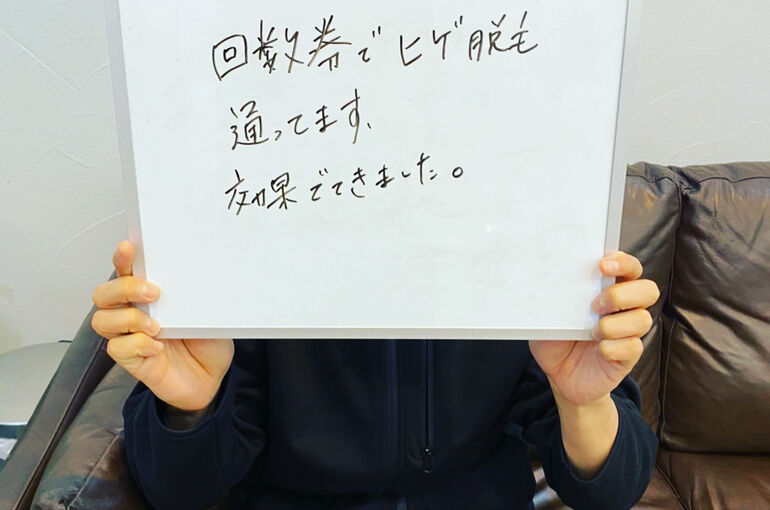 回数券でヒゲ脱毛
通ってます、
効果でてきました。